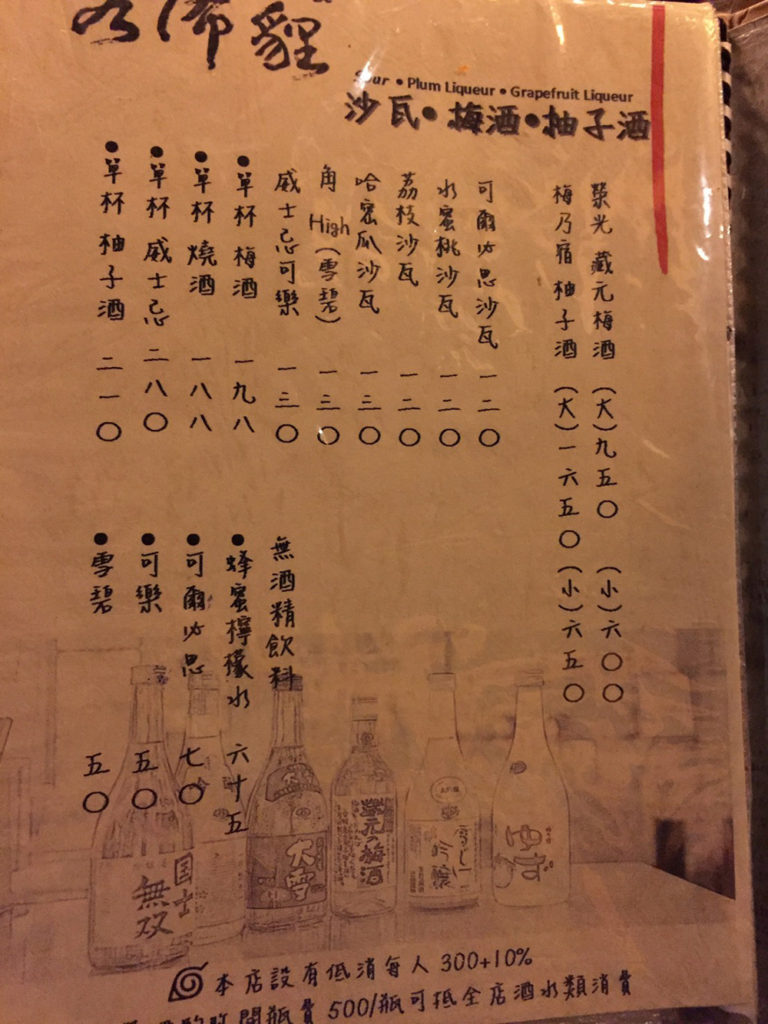 Sour • Plum Liqueur • Grapefruit Liqueur
沙瓦•梅酒•柚子酒
榮光 藏元梅酒 (大)九五〇 (小)六〇〇
梅乃宿 柚子酒 (大)一六五〇 (小)六五〇
可爾必思沙瓦 一二〇
水蜜桃沙瓦 一二〇
荔枝沙瓦 一二〇
哈密瓜沙瓦 一三〇
角 High(雪碧) 一三〇
威士忌可樂 一三〇
•單杯 梅酒 一九八
•單杯 燒酒 一八八
•單杯 威士忌 二八〇
•單杯 柚子酒 二一〇
無酒精飲料
•蜂蜜檸檬水 六十五
•可爾必思 七〇
•可樂 五〇
•雪碧 五〇
国士無双
大雪
蔵元の梅酒
吟醸
ゆず
本店設有低消每人 300+10%
開瓶費 500/瓶可抵全店酒水類消費